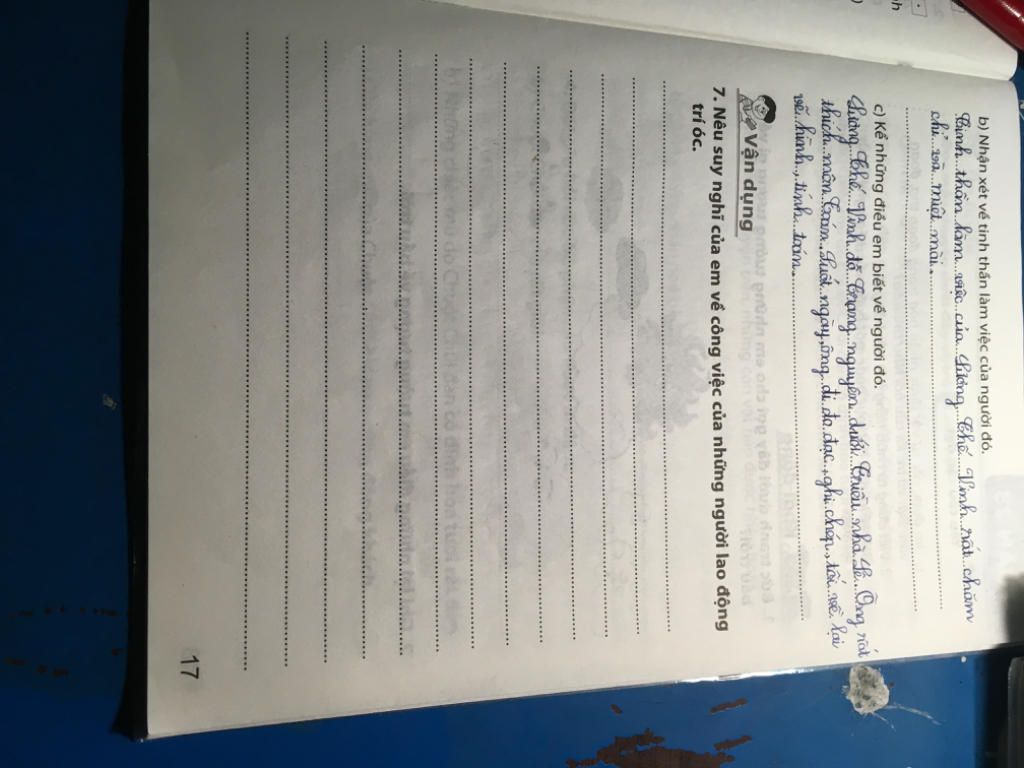 b) Nhận xét về tinh thần làm việc của người đó.
Tinh thần làm việc của Lương Thế Vinh rất chăm
chỉ và miệt mài.
c) Kể những điều em biết về người đó.
Lương Thế Vinh đỗ Trạng nguyên dưới Triều nhà Lê. Ông rất
thích môn Toán. Suốt ngày, ông đi đo đạc, ghi chép, tối về lại
vẽ hình, tính toán.
Vận dụng
7. Nêu suy nghĩ của em về công việc của những người lao động
trí óc.
17